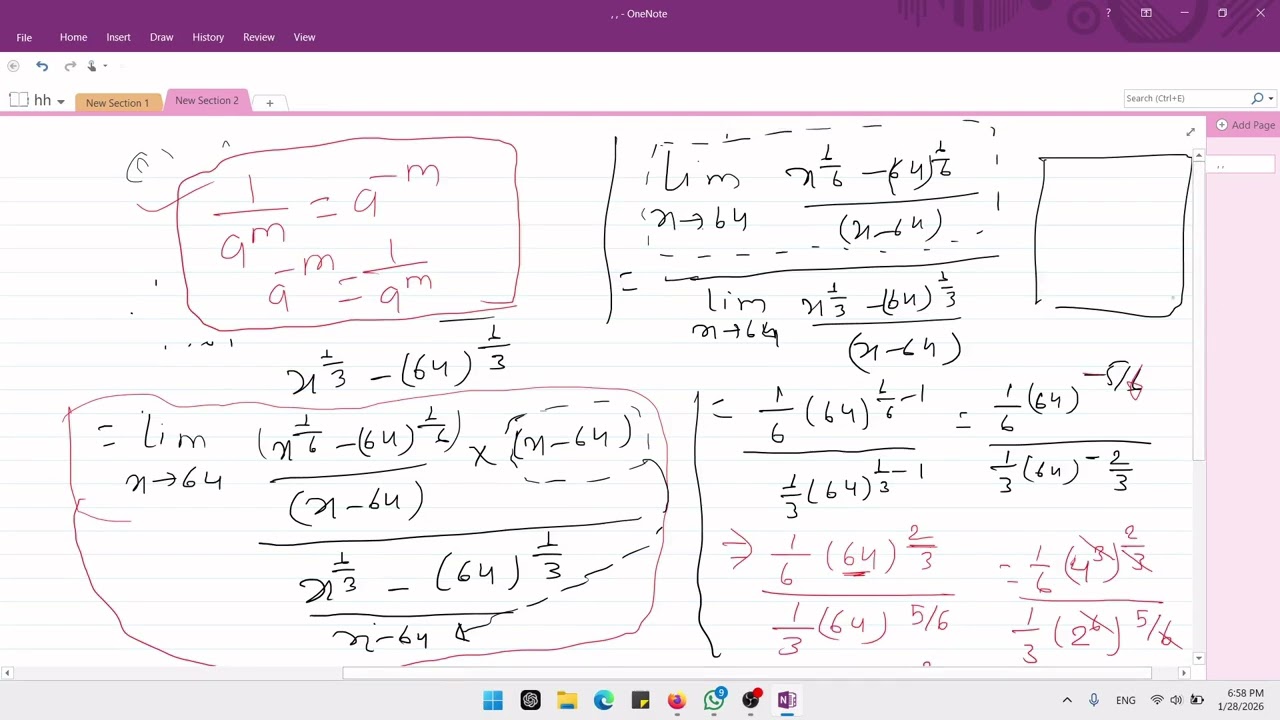 , , - OneNote
File Home Insert Draw History Review View
hh New Section 1 New Section 2 +
Search (Ctrl+E)
Add Page
, ,
1/a^m = a^-m
a^-m = 1/a^m
x^1/3 - (64)^1/3
= lim x→64 (x^1/6 - (64)^1/6)/(x-64) × (x-64)
x^1/3 - (64)^1/3
x-64
lim x→64 x^1/6 - (64)^1/6 / (x-64)
=
lim x→64 x^1/3 - (64)^1/3 / (x-64)
= 1/6 (64)^1/6-1 / 1/3 (64)^1/3-1 = 1/6 (64)^-5/6 / 1/3 (64)^-2/3
⇒ 1/6 (64)^2/3 / 1/3 (64)^5/6 = 1/6 (4^3)^2/3 / 1/3 (2^6)^5/6
9
ENG
6:58 PM
1/28/2026